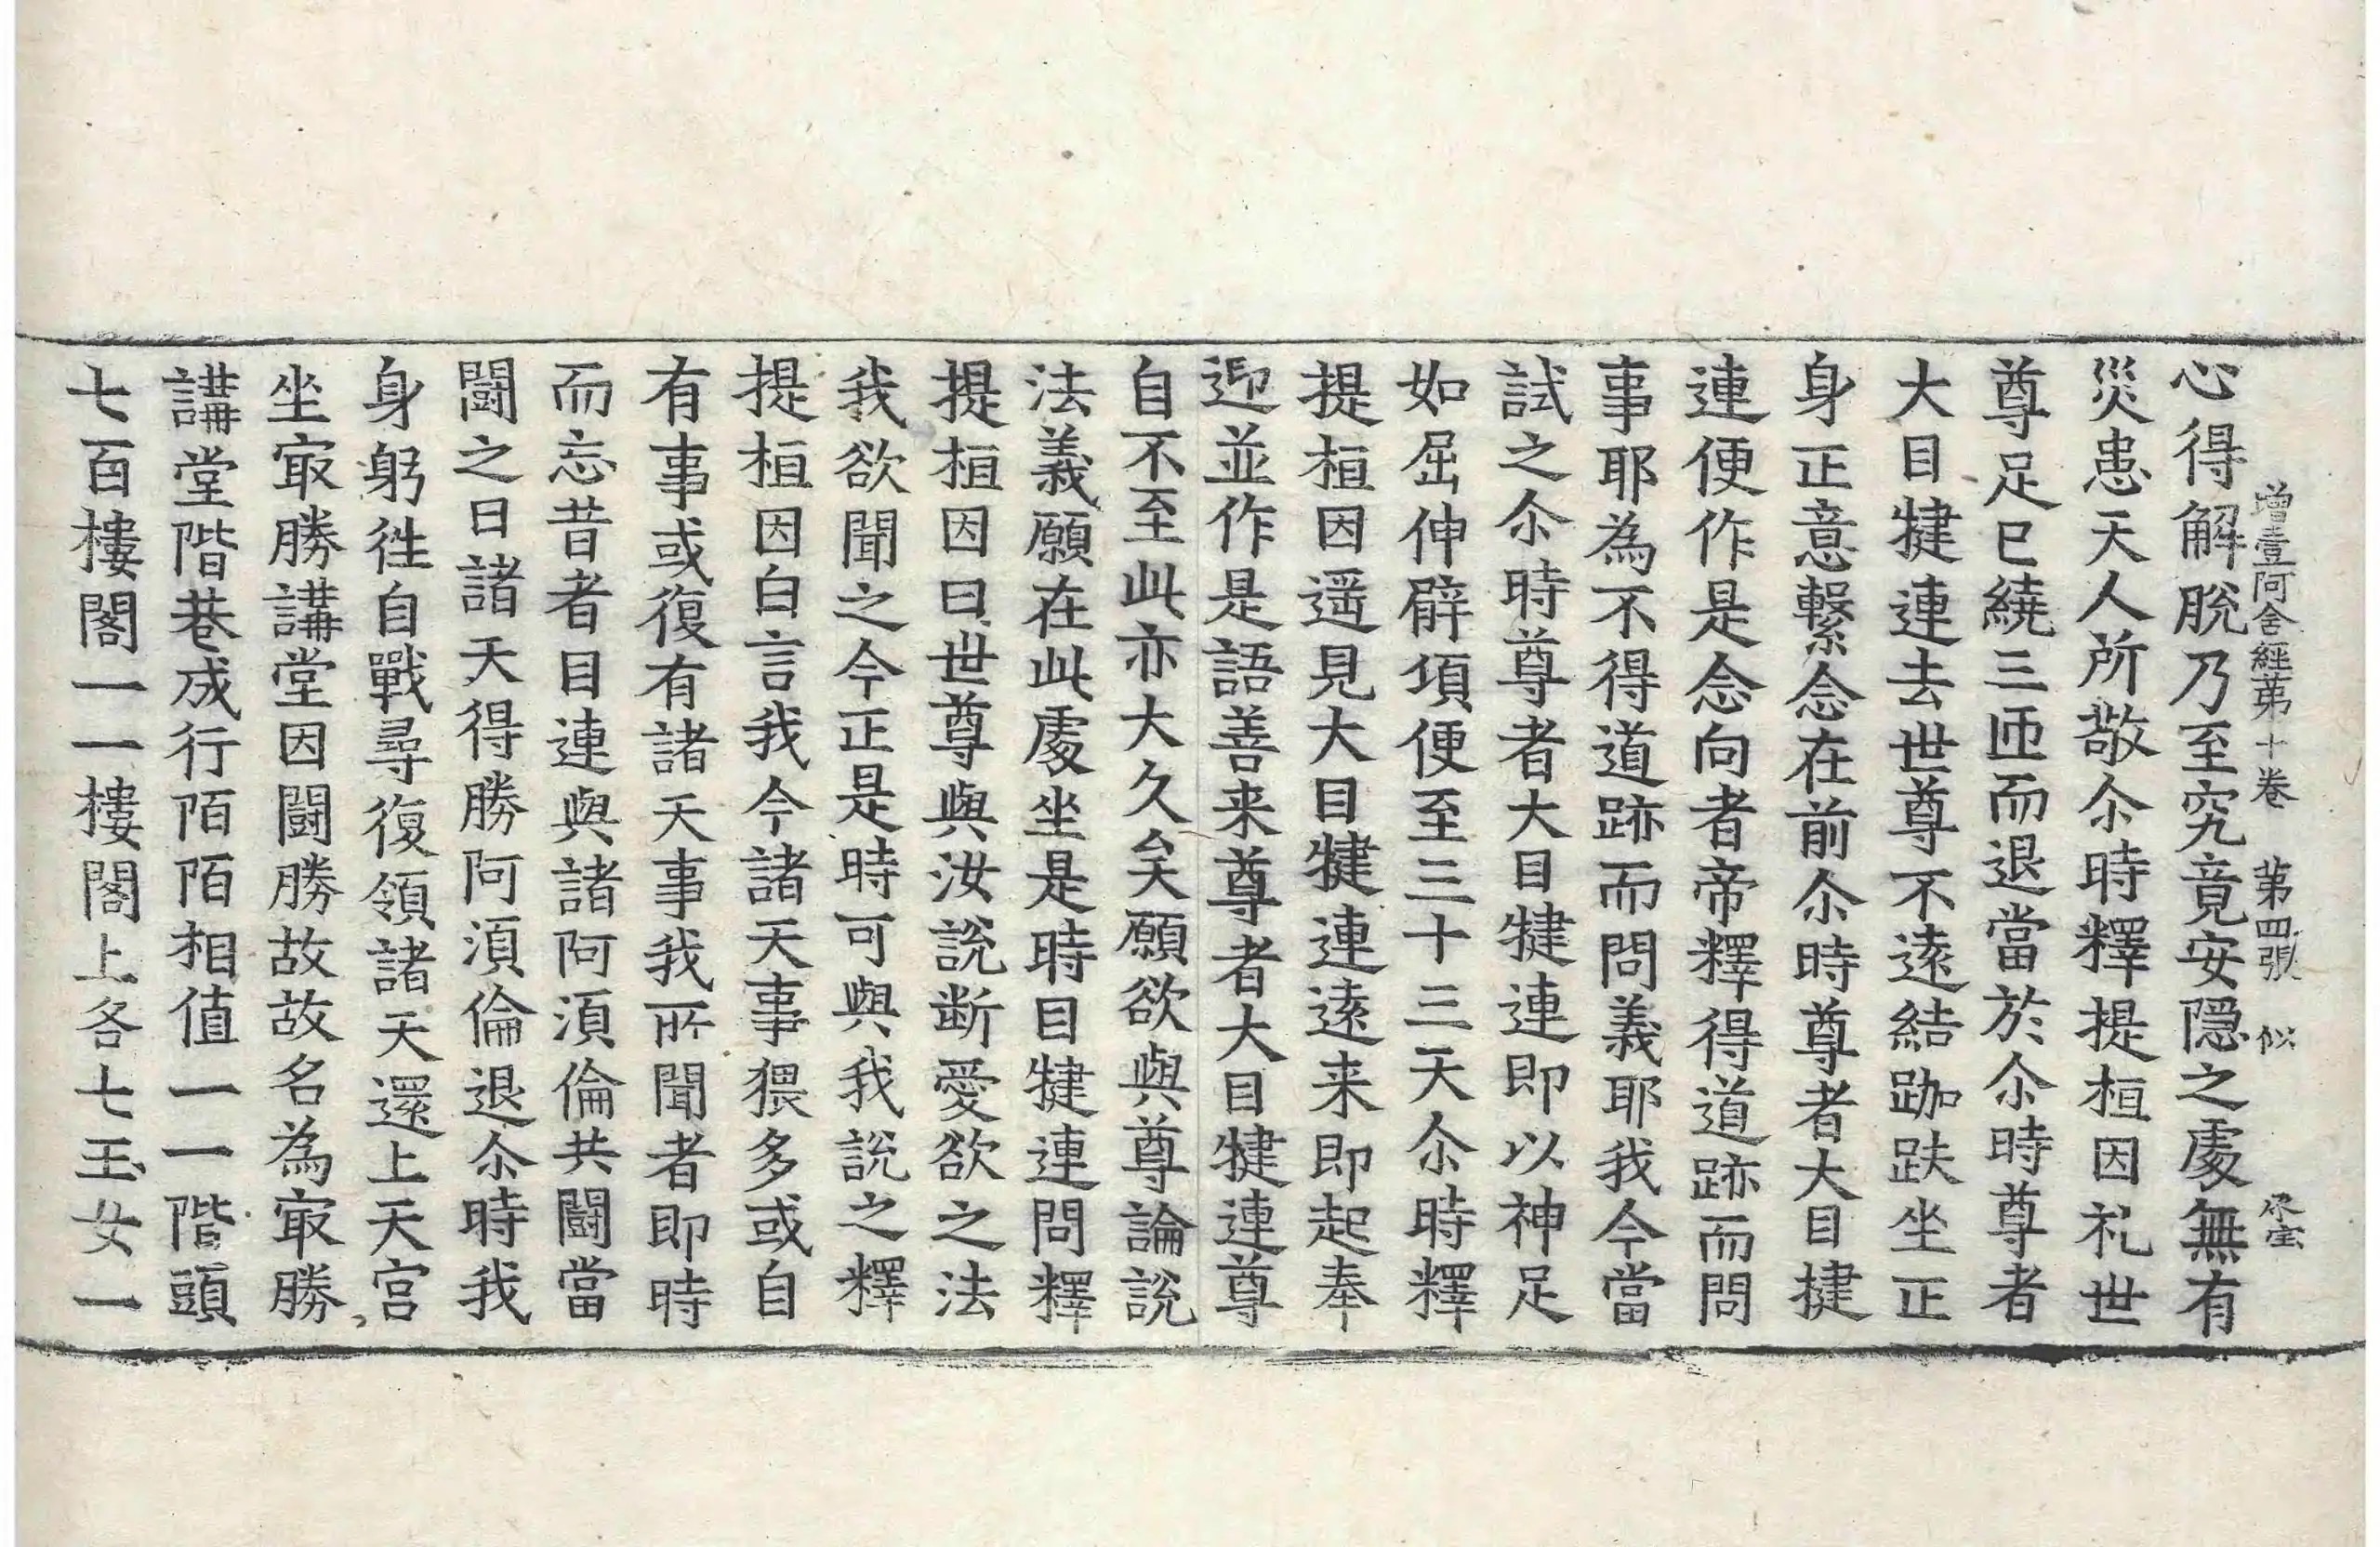 增壹阿含經苐十卷 苐四張 似
心得解脫乃至究竟安隱之處無有
災患天人所敬尒時釋提桓因礼世
尊足已繞三匝而退當於尒時尊者
大目犍連去世尊不遠結跏趺坐正
身正意繫念在前尒時尊者大目揵
連便作是念向者帝釋得道跡而問
事耶為不得道跡而問義耶我今當
試之尒時尊者大目犍連即以神足
如屈伸臂頃便至三十三天尒時釋
提桓因遥見大目犍連遠来即起奉
迎並作是語善来尊者大目犍連尊
自不至此亦大久矣願欲與尊論說
法義願在此處坐是時目犍連問釋
提桓因曰世尊與汝說断愛欲之法
我欲聞之今正是時可與我說之釋
提桓因白言我今諸天事猥多或自
有事或復有諸天事我所聞者即時
而忘昔者目連與諸阿須倫共鬪當
鬪之日諸天得勝阿須倫退尒時我
身躬往自戰尋復領諸天還上天宮
坐㝡勝講堂因鬪勝故故名為㝡勝
講堂階巷成行陌陌相值一一階頭
七百樓閣一一樓閣上各七玉女一